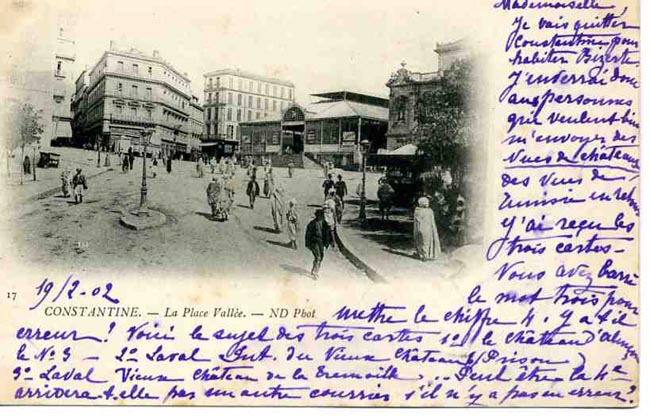 Mademoiselle,
Je vais quitter
Constantine pour
habiter Bizerte.
J'enverrai donc
aux personnes
qui veulent bien
m'envoyer des
Vues de Châteaux
des Vues de
Tunisie en retour
J'ai reçu les
trois cartes -
Vous avez barré
le mot trois pour
mettre le chiffre 4. Y a t il
erreur? Voici le sujet des trois cartes 1º le château d'Alençon
le Nº 3 - 2º Laval Ent. du Vieux Château (Prison)
3º Laval Vieux Château de la Tremoille. ... Peut être la 4e
arrivera t-elle par un autre courrier s'il n'y a pas eu erreur?
19/2-02
17
CONSTANTINE. — La Place Vallée. — ND Phot